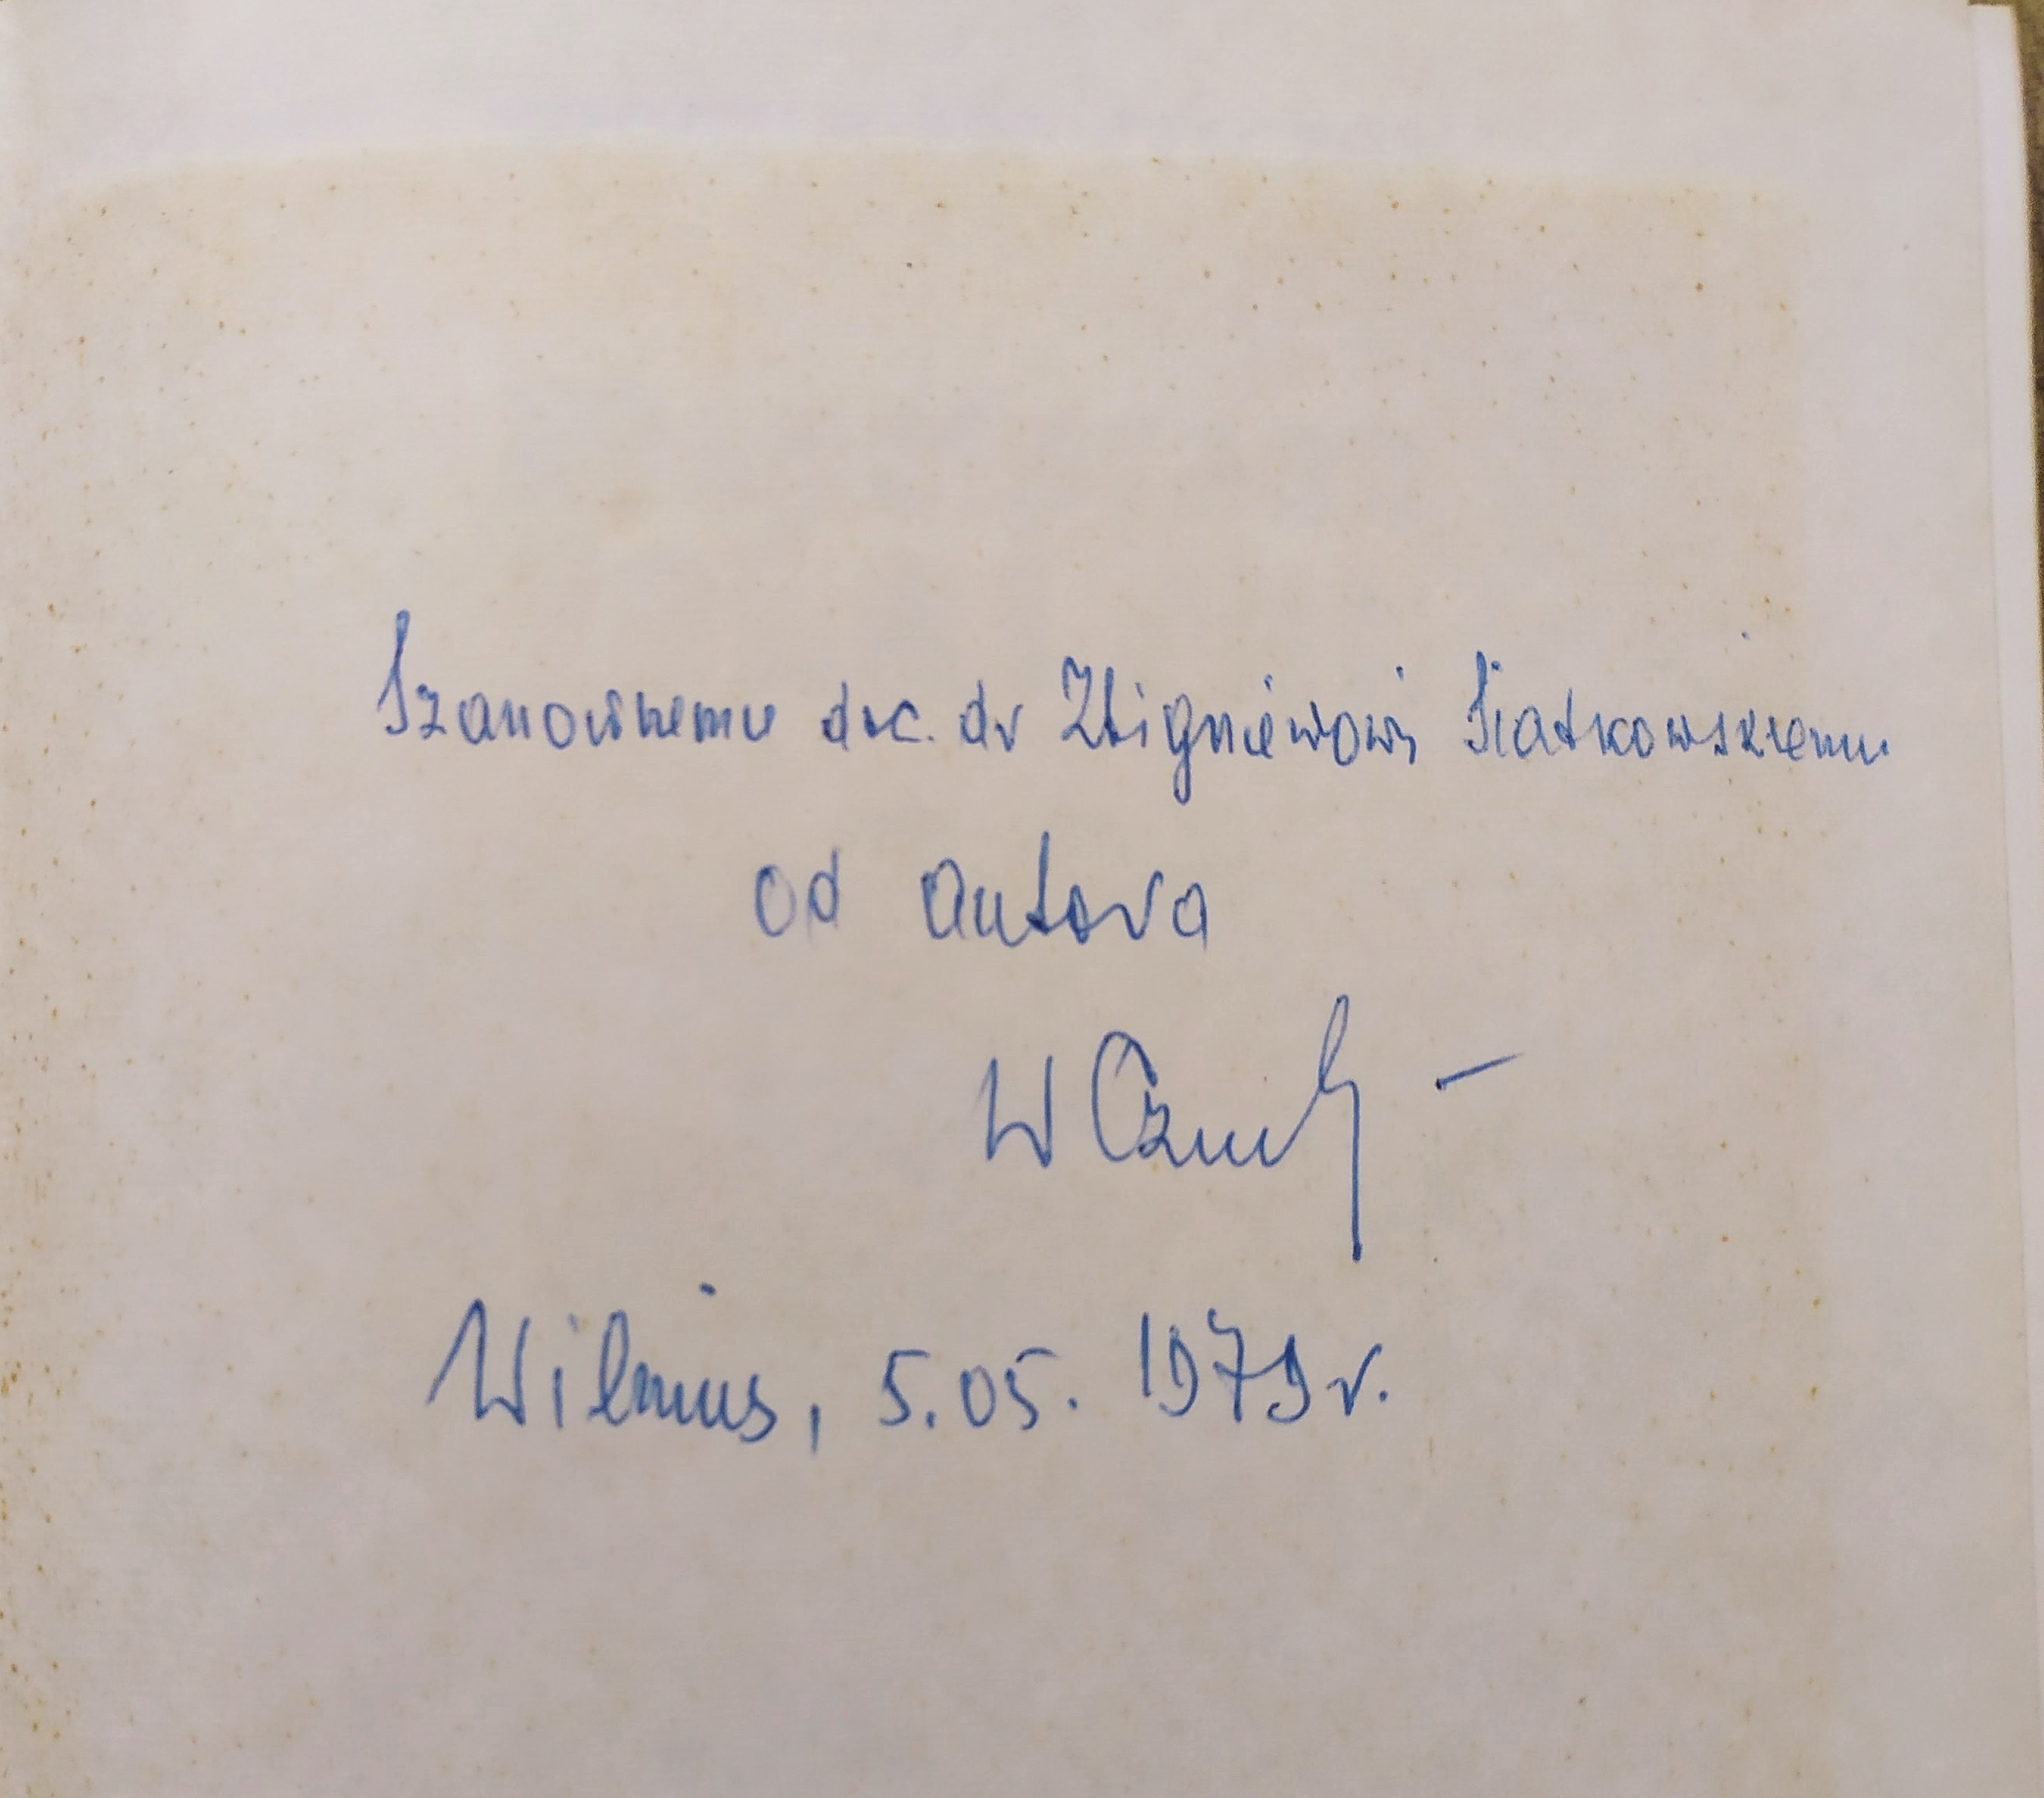 Szanownemu doc. dr Zbigniewowi Siatkowskiemu
od autora
Wilnius, 5.05.1979 r.